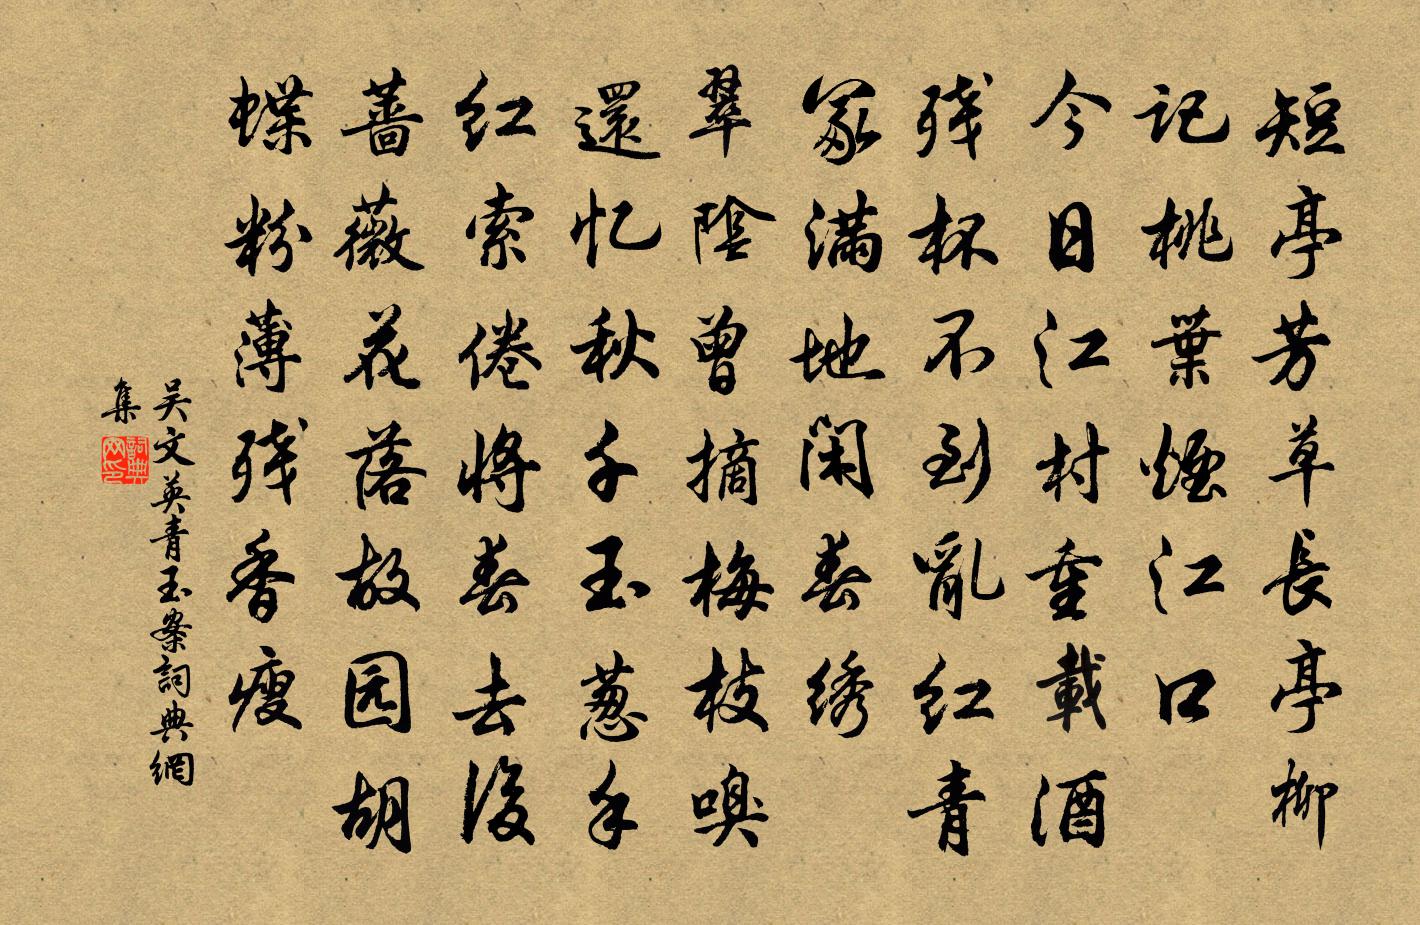 短亭芳草長亭柳
记桃葉煙江口
今日江村重載酒
残杯不到亂红青
冢滿地闲春绣
翠陰曾摘梅枝嗅
還忆秋千玉葱手
红索倦將春去後
蔷薇花落故园胡
蝶粉薄残香瘦
吴文英青玉案詞典網
集
詞典网印